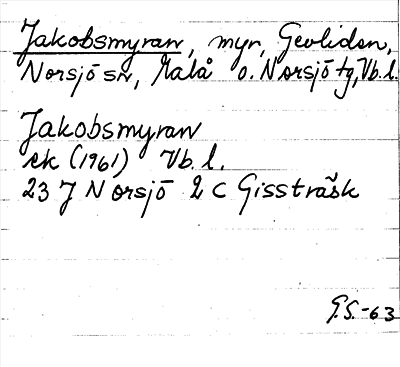 Jakobsmyran, myr, Gevliden,
Norsjö sn, Malå o. Norsjö tg, Vb. l.
Jakobsmyran
ek (1961) Vb. l.
23 J Norsjö 2 c Gissträsk
G.S.-63